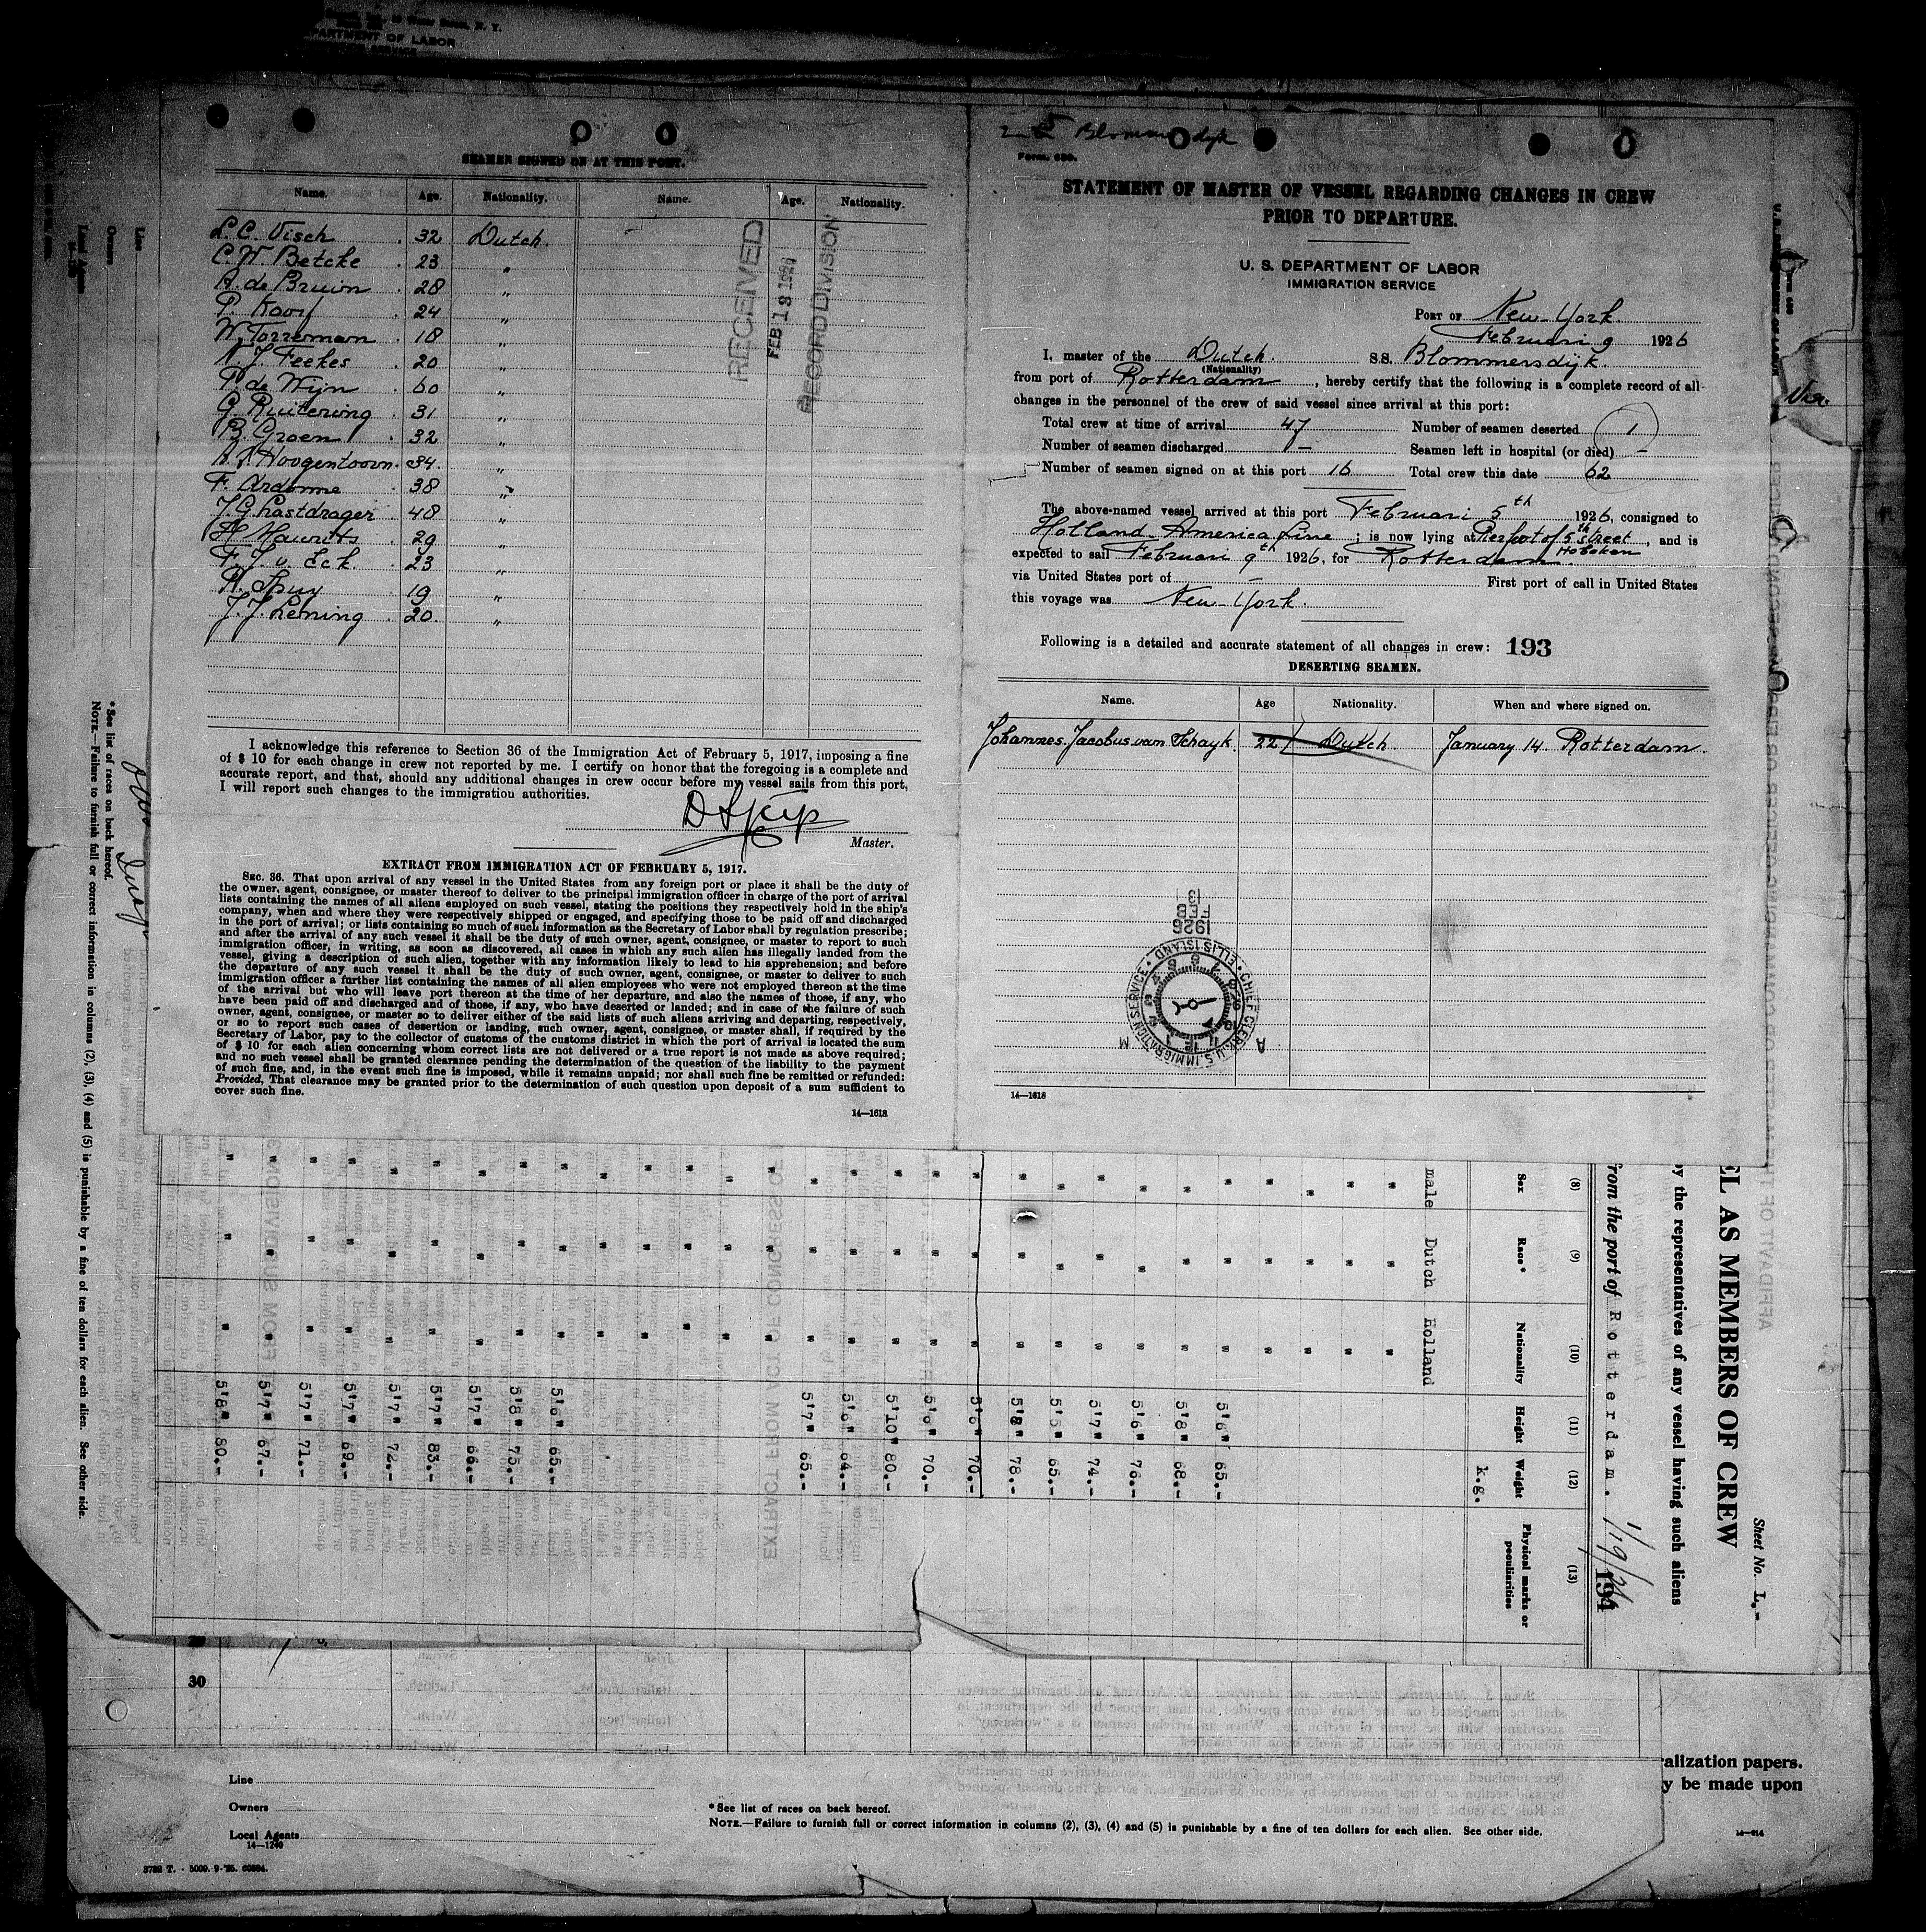 SEAMEN SIGNED ON AT THIS PORT.
Name. Age. Nationality. Name. Age. Nationality.
L. C. Visch 32 Dutch.
C. W. Betcke 23 "
A. de Bruin 28 "
P. Kooy 24 "
W. Torreman 18 "
N. J. Feekes 20 "
P. de Wijn 60 "
G. Ruitering 31 "
B. Groen 32 "
Hoogentoorn 34 "
F. Ardonne 38 "
J. G. Lastdrager 48 "
H. Maurits 29 "
F. J. v. Eck 23 "
H. Spuy 19 "
J. J. Lening 20 "
RECEIVED
FEB 13 1926
RECORD DIVISION
I acknowledge this reference to Section 36 of the Immigration Act of February 5, 1917, imposing a fine
of $ 10 for each change in crew not reported by me. I certify on honor that the foregoing is a complete and
accurate report, and that, should any additional changes in crew occur before my vessel sails from this port,
I will report such changes to the immigration authorities.
Master.
EXTRACT FROM IMMIGRATION ACT OF FEBRUARY 5, 1917.
SEC. 36. That upon arrival of any vessel in the United States from any foreign port or place it shall be the duty of
the owner, agent, consignee, or master thereof to deliver to the principal immigration officer in charge of the port of arrival
lists containing the names of all aliens employed on such vessel, stating the positions they respectively hold in the ship's
company, when and where they were respectively shipped or engaged, and specifying those to be paid off and discharged
in the port of arrival; or lists containing so much of such information as the Secretary of Labor shall by regulation prescribe;
and after the arrival of any such vessel it shall be the duty of such owner, agent, consignee, or master to report to such
immigration officer, in writing, as soon as discovered, all cases in which any such alien has illegally landed from the
vessel, giving a description of such alien, together with any information likely to lead to his apprehension; and before
the departure of any such vessel it shall be the duty of such owner, agent, consignee, or master to deliver to such
immigration officer a further list containing the names of all alien employees who were not employed thereon at the time
of the arrival but who will leave port thereon at the time of her departure, and also the names of those, if any, who
have been paid off and discharged and of those, if any, who have deserted or landed; and in case of the failure of such
owner, agent, consignee, or master so to deliver either of the said lists of such aliens arriving and departing, respectively,
or so to report such cases of desertion or landing, such owner, agent, consignee, or master shall, if required by the
Secretary of Labor, pay to the collector of customs of the customs district in which the port of arrival is located the sum
of $ 10 for each alien concerning whom correct lists are not delivered or a true report is not made as above required;
and no such vessel shall be granted clearance pending the determination of the question of the liability to the payment
of such fine, and, in the event such fine is imposed, while it remains unpaid; nor shall such fine be remitted or refunded:
Provided, That clearance may be granted prior to the determination of such question upon deposit of a sum sufficient to
cover such fine.
14—1618
Blommersdyk
Form. 689.
STATEMENT OF MASTER OF VESSEL REGARDING CHANGES IN CREW
PRIOR TO DEPARTURE.
U. S. DEPARTMENT OF LABOR
IMMIGRATION SERVICE
PORT OF New-York.
Februari 9 1926
I, master of the Dutch. S.S. Blommersdyk.
(Nationality)
from port of Rotterdam, hereby certify that the following is a complete record of all
changes in the personnel of the crew of said vessel since arrival at this port:
Total crew at time of arrival 47 Number of seamen deserted 1
Number of seamen discharged — Seamen left in hospital (or died) —
Number of seamen signed on at this port 16 Total crew this date 62
The above-named vessel arrived at this port Februari 5th 1926, consigned to
Holland-America Line; is now lying at Pier foot of 5th street, and is
Hoboken
expected to sail Februari 9th 1926, for Rotterdam.
via United States port of — First port of call in United States
this voyage was New-York.
Following is a detailed and accurate statement of all changes in crew: 193
DESERTING SEAMEN.
Name. Age Nationality. When and where signed on.
Johannes Jacobus van Schayk. 22 Dutch January 14 Rotterdam.
1926
FEB
13
CHIEF CLERK U.S. IMMIGRATION SERVICE • ELLIS ISLAND •
A M
14—1618
EL AS MEMBERS OF CREW
Sheet No. L.-
by the representatives of any vessel having such aliens
from the port of Rotterdam. 1/19/26
194
(8) (9) (10) (11) (12) (13)
Sex Race* Nationality Height Weight Physical marks or peculiarities
k.g.
male Dutch Holland
5'6" 65.-
5'8" 68.-
5'6" 76.-
5'7" 74.-
5'5" 65.-
5'8" 78.-
5'6" 70.-
5'6" 70.-
5'10" 80.-
5'6" 64.-
5'7" 65.-
5'6" 65.-
5'8" 75.-
5'7" 66.-
5'7" 83.-
5'7" 72.-
5'7" 69.-
5'7" 71.-
5'7" 67.-
5'8" 80.-
Line
Owners
Local Agents
*See list of races on back hereof.
NOTE.—Failure to furnish full or correct information in columns (2), (3), (4) and (5) is punishable by a fine of ten dollars for each alien. See other side.
30
Line
Owners
Local Agents
14—1240
*See list of races on back hereof.
NOTE.—Failure to furnish full or correct information in columns (2), (3), (4) and (5) is punishable by a fine of ten dollars for each alien. See other side.
alization papers.
y be made upon